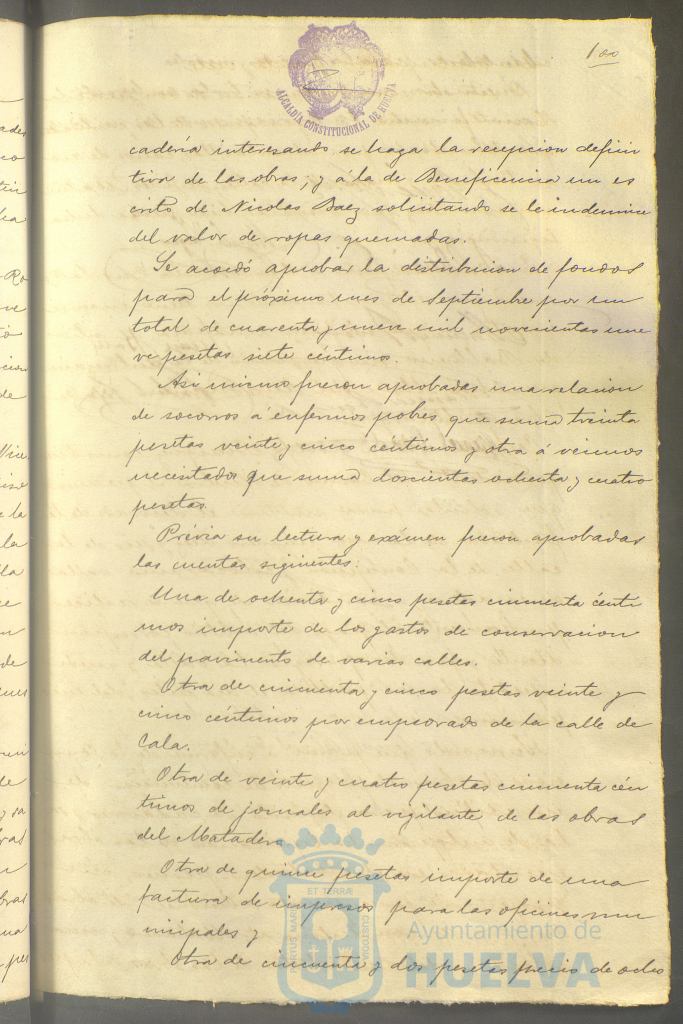 100
ALCALDÍA CONSTITUCIONAL DE HUELVA
cadería interesando se haga la recepcion defini
tiva de las obras; y á la de Beneficencia un es
crito de Nicolas Baez solicitando se le indemnice
del valor de ropas quemadas.
Se acordó aprobar la distribucion de fondos
para el próximo mes de Septiembre por un
total de cuarenta y nueve mil novecientas nue
ve pesetas siete céntimos.
Asi mismo fueron aprobadas una relacion
de socorros á enfermos pobres que suma treinta
pesetas veinte y cinco centimos y otra á vecinos
necesitados que suma doscientas ochenta y cuatro
pesetas.
Prévia su lectura y exámen fueron aprobadas
las cuentas siguientes:
Una de ochenta y cinco pesetas cincuenta centi
mos importe de los gastos de conservacion
del pavimento de varias calles.
Otra de cincuenta y cinco pesetas veinte y
cinco céntimos por empedrado de la calle de
Cala.
Otra de veinte y cuatro pesetas cincuenta cén
timos de jornales al vigilante de las obras
del Matadero
Otra de quince pesetas importe de una
factura de impresos para las oficinas mu
nicipales y
Otra de cincuenta y dos pesetas precio de ocho
ET TERRÆ
PORTUS MARIS
CUSTODIA
Ayuntamiento de
HUELVA